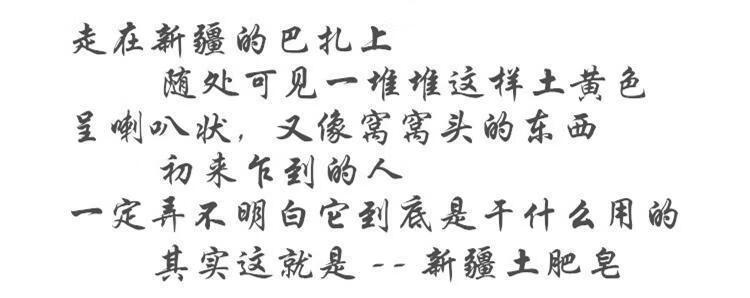 走在新疆的巴扎上
随处可见一堆堆这样土黄色
呈喇叭状，又像窝窝头的东西
初来乍到的人
一定弄不明白它到底是干什么用的
其实这就是--新疆土肥皂